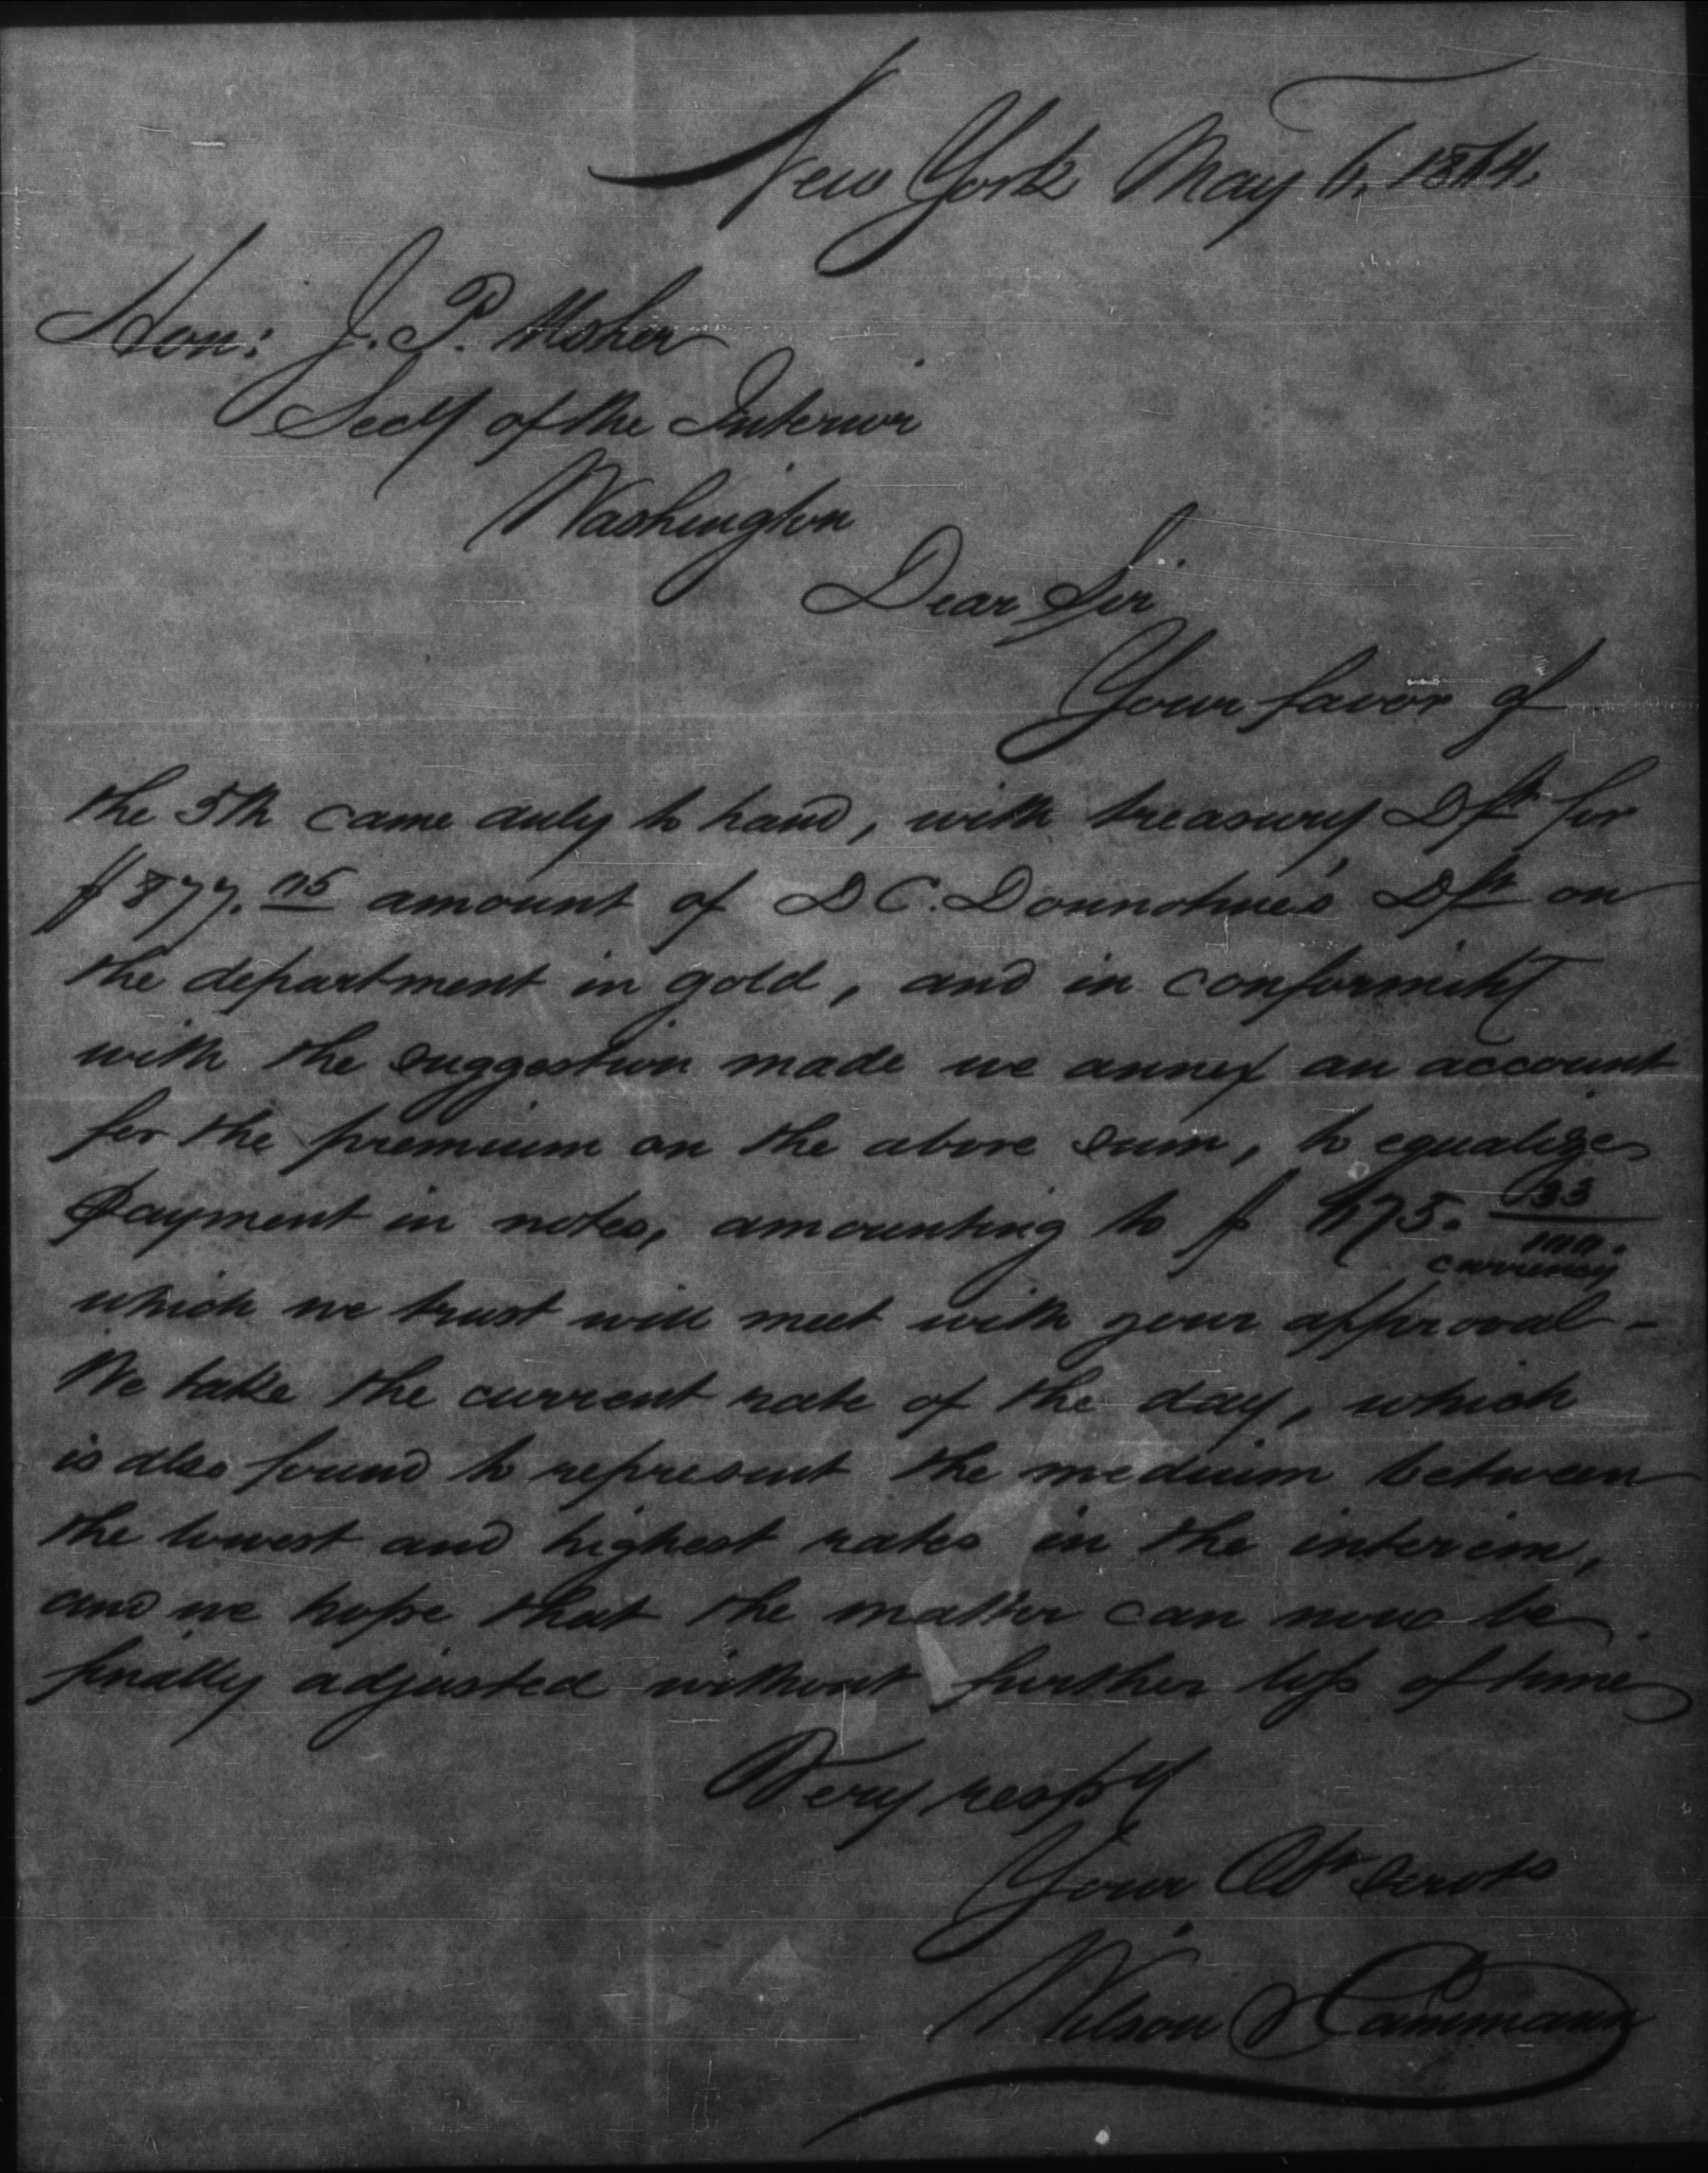 New York May 6, 1864.
Hon: J. P. Usher
Secy of the Interior
Washington
Dear Sir
Your favor of
the 5th came duly to hand, with treasury Dft for
$877.05 amount of D C. Donnohue's Dft on
the department in gold, and in conformity
with the suggestion made we annex an account
for the premium on the above sum, to equalize
payment in notes, amounting to $ 675. 33/100.
currency
which we trust will meet with your approval -
We take the current rate of the day, which
is also found to represent the medium between
the lowest and highest rates in the interim,
and we hope that the matter can now be
finally adjusted without further loss of time
Very respy
Your Obt Servts
Wilson & Cammann